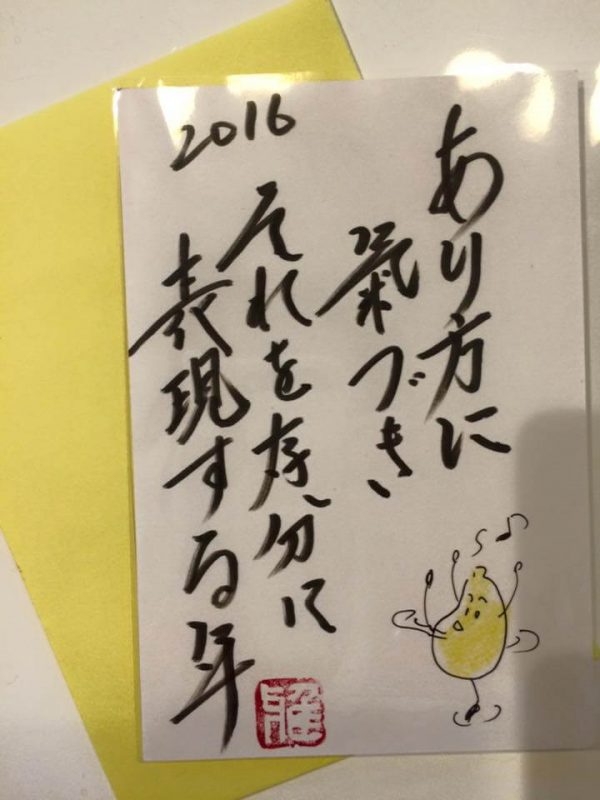 2016
あり方に
氣づき、
それを存分に
表現する年